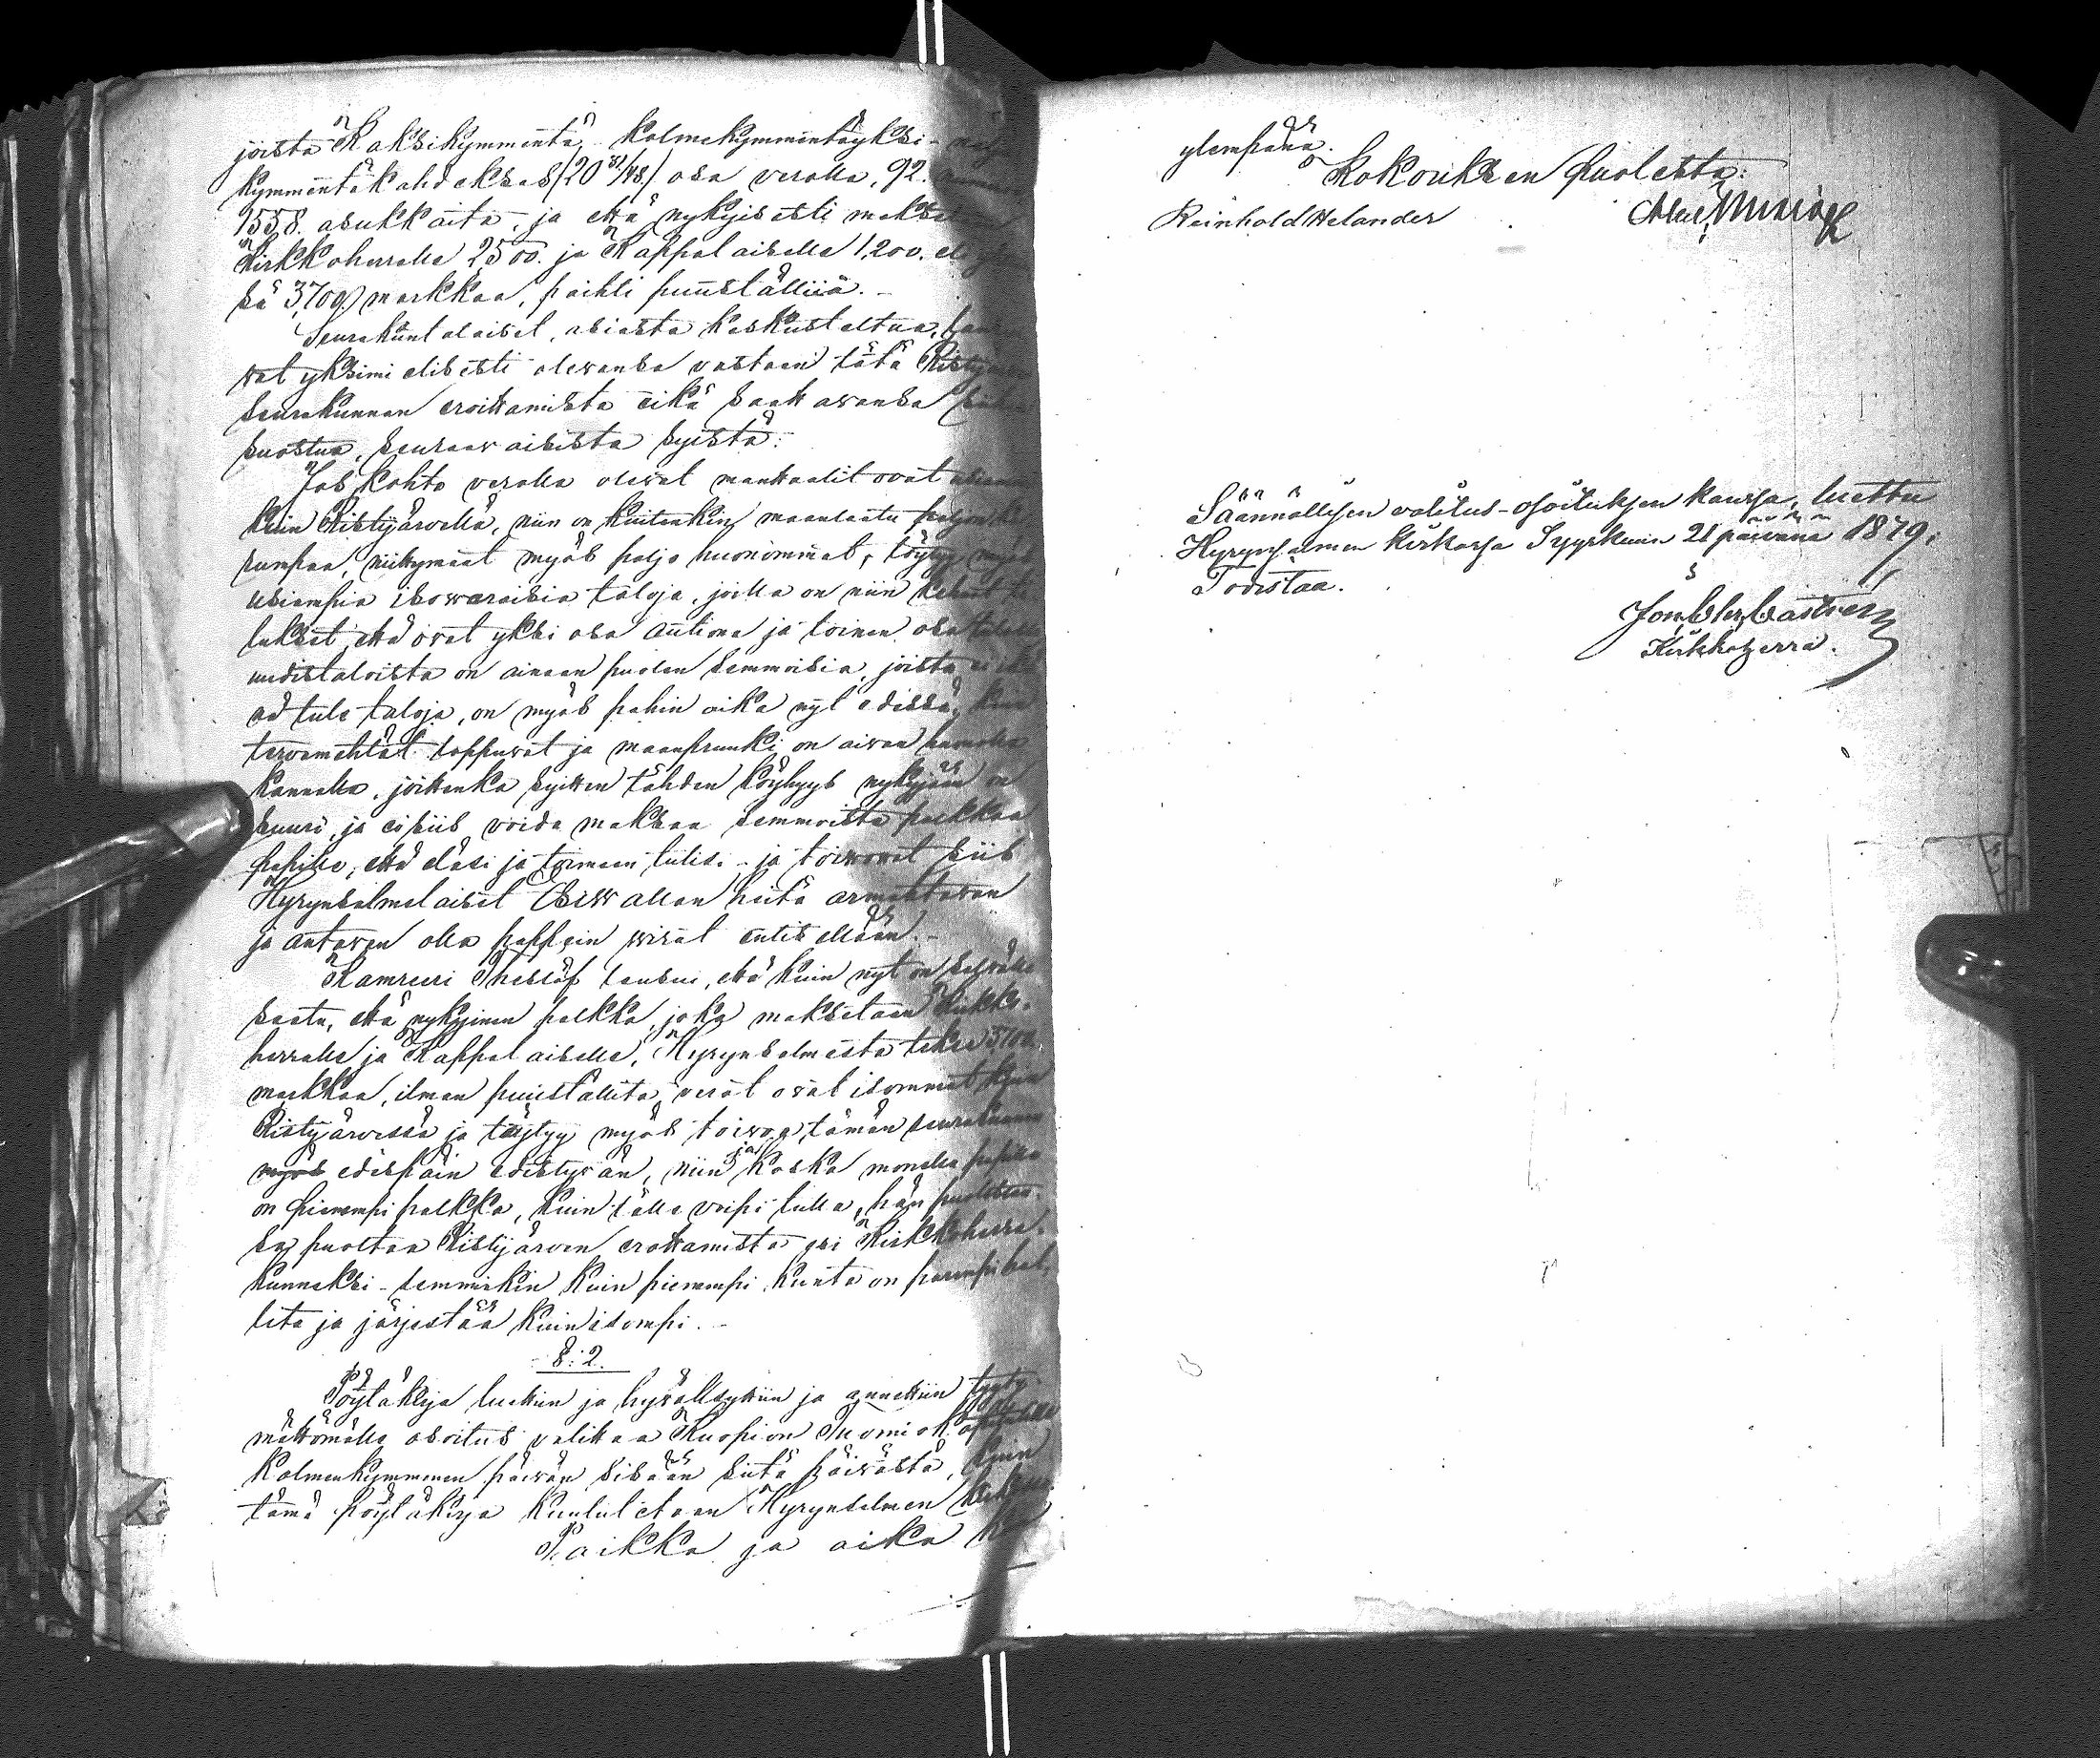 joista Kaksikymmentä kolmekymmentäyksi
kymmentäkahdeksas (20 31/48.) osa verolla, 92.
1558. asukkaita, ja että nykyisesti maksa
Kirkkoherralle 2,500. ja Kappalaiselle 1,200. el
sä 3,700.) markkaa, paitsi puuställiä. -
Seurakuntalaiset, asiasta keskusteltua,
wat yksimielisesti olevansa vastaan tätä
seurakunnan eroittamista eikä saattavansa
suostua, seuraavaisista syistä:
Jos kohta verolla olevat manttaalit ovat
kuin Ristijärvellä, niin on kuitenkin maanlaatu
rumpaa, niittymaat myös paljo huonommat, löytyy
usiampia isovaraisia taloja, joilla on niin
lukset, että ovat yksi osa autiona ja toinen osa
uudistaloista on ainaan puolen semmoisia, joista
ad tule taloja, on myös pahin aika nyt edessä, kun
tervamehtät loppuvat ja maanpruuki on aivan
kannalla, joittenka syitten tähden köyhyys nykyjään on
suuri, ja ei siis voida maksaa semmoista palkkaa
papille, että eläsi ja toimeen tulisi - ja toivovat siis
Hyrynsalmelaiset Esivallan heitä armahtavan
ja antavan olla pappein virat entisellään. -
Kamreeri Theslöf lausui, että kuin nyt on selvälle
saatu, että nykyjinen palkka, joka maksetaan Kirkko-
herralle ja Kappalaiselle, Hyrynsalmesta tekee 3700.
markkaa, ilman puuställitä, verot ovat isommat kuin
Ristijärvessä ja täytyy myös toivoa, tämän seurakunnan
myös edespäin edistyvän, niin ja koska monella papilla
on pienempi palkka, kuin tälle voipi tulla, hän puolestan-
sa puoltaa Ristijärven erottamista eri Kirkkoherra-
kunnaksi - semminkin kuin pienempi kunta on parempi hal-
lita ja järjestää kuin isompi. -
§: 2.
Pöytäkirja luettiin ja hyväksyttiin ja annettiin tyyty-
mättömälle osoitus valittaa Kuopion Tuomiok.
Kolmenkymmenen päivän sisään siitä päivästä, kuin
tämä pöytäkirja kuulutetaan Hyrynsalmen
Paikka ja aika
ylempänä.
Kokouksen puolesta:
Reinhold Helander
Säännöllisen valitus-osoituksen kanssa, luettu
Hyrynsalmen kirkossa Syyskuun 21 päivänä 1879,
Todistaa.
Kirkkoherra.